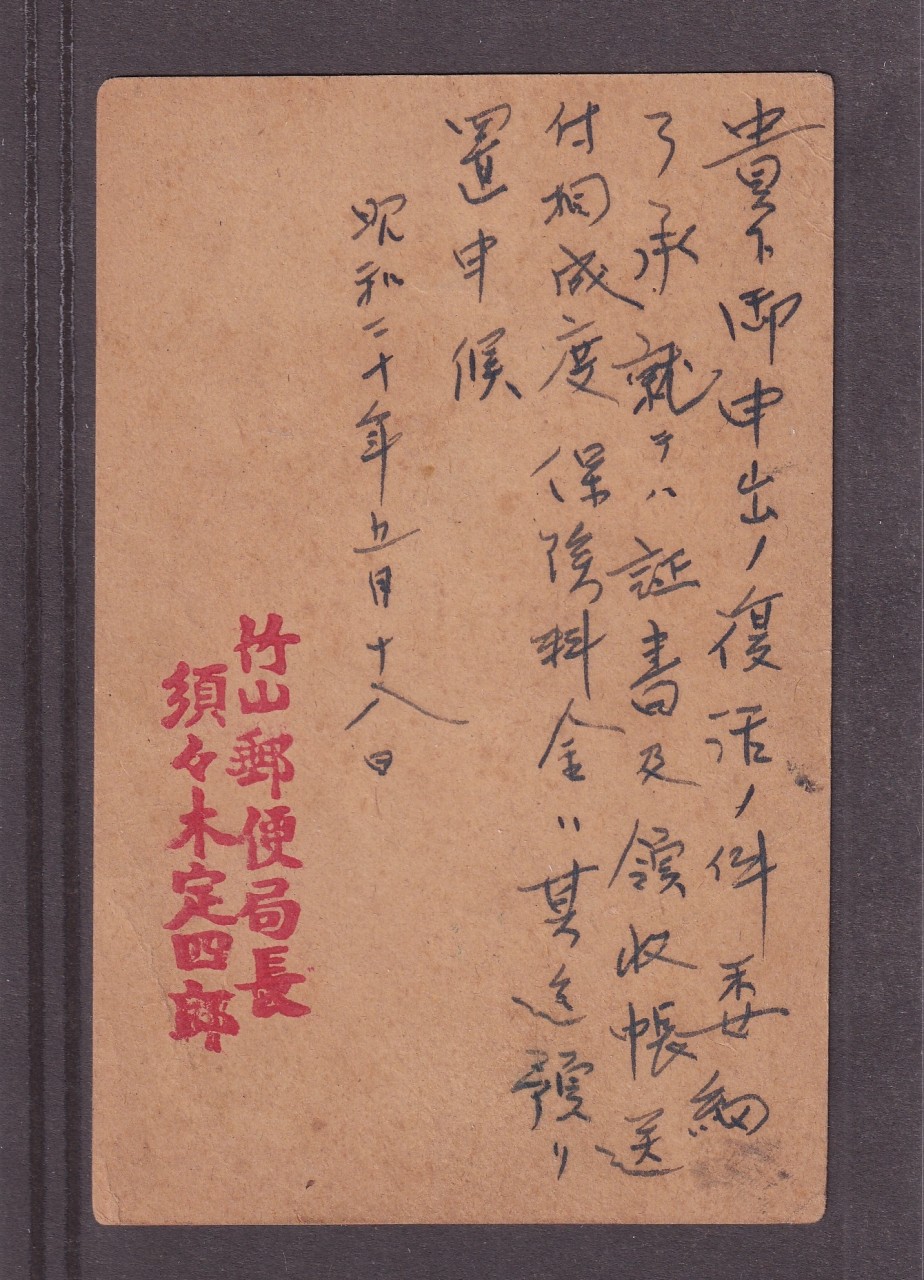 貴下御申出ノ復活ノ件委細
了承就テハ証書及領収帳送
付相成度保険料金ハ其迄預リ
置申候
昭和二十年五月十八日
竹山郵便局長
須々木定四郎